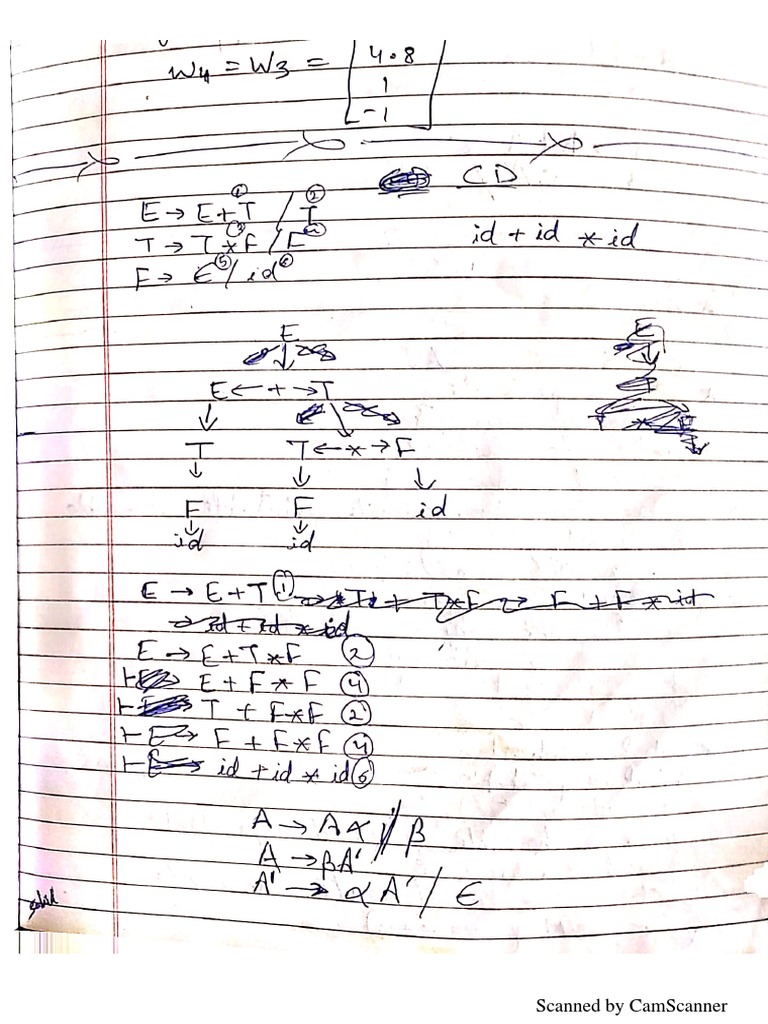 W4 = W3 = [4.8
1
-1]
CD
E → E+T ① / T ②
T → T*F ③ / F ④
F → E ⑤ / id ⑥
id + id * id
E
E ← + → T
T T ← * → F
F F id
id id
E → E+T ①
E → E+T*F ②
⊢ E + F * F ④
⊢ T + F*F ②
⊢ F + F*F ④
⊢ id + id * id ⑥
A → Aα / β
A → βA'
A' → αA' / ϵ
Scanned by CamScanner